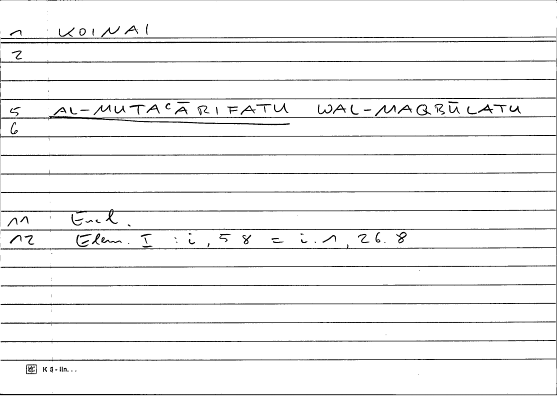 1 KOINAI
2
5 AL-MUTAᶜĀRIFATU WAL-MAQBŪLATU
6
11 Eucl.
12 Elem. I : i, 58 = i.1, 26.8
K 8 - lin...